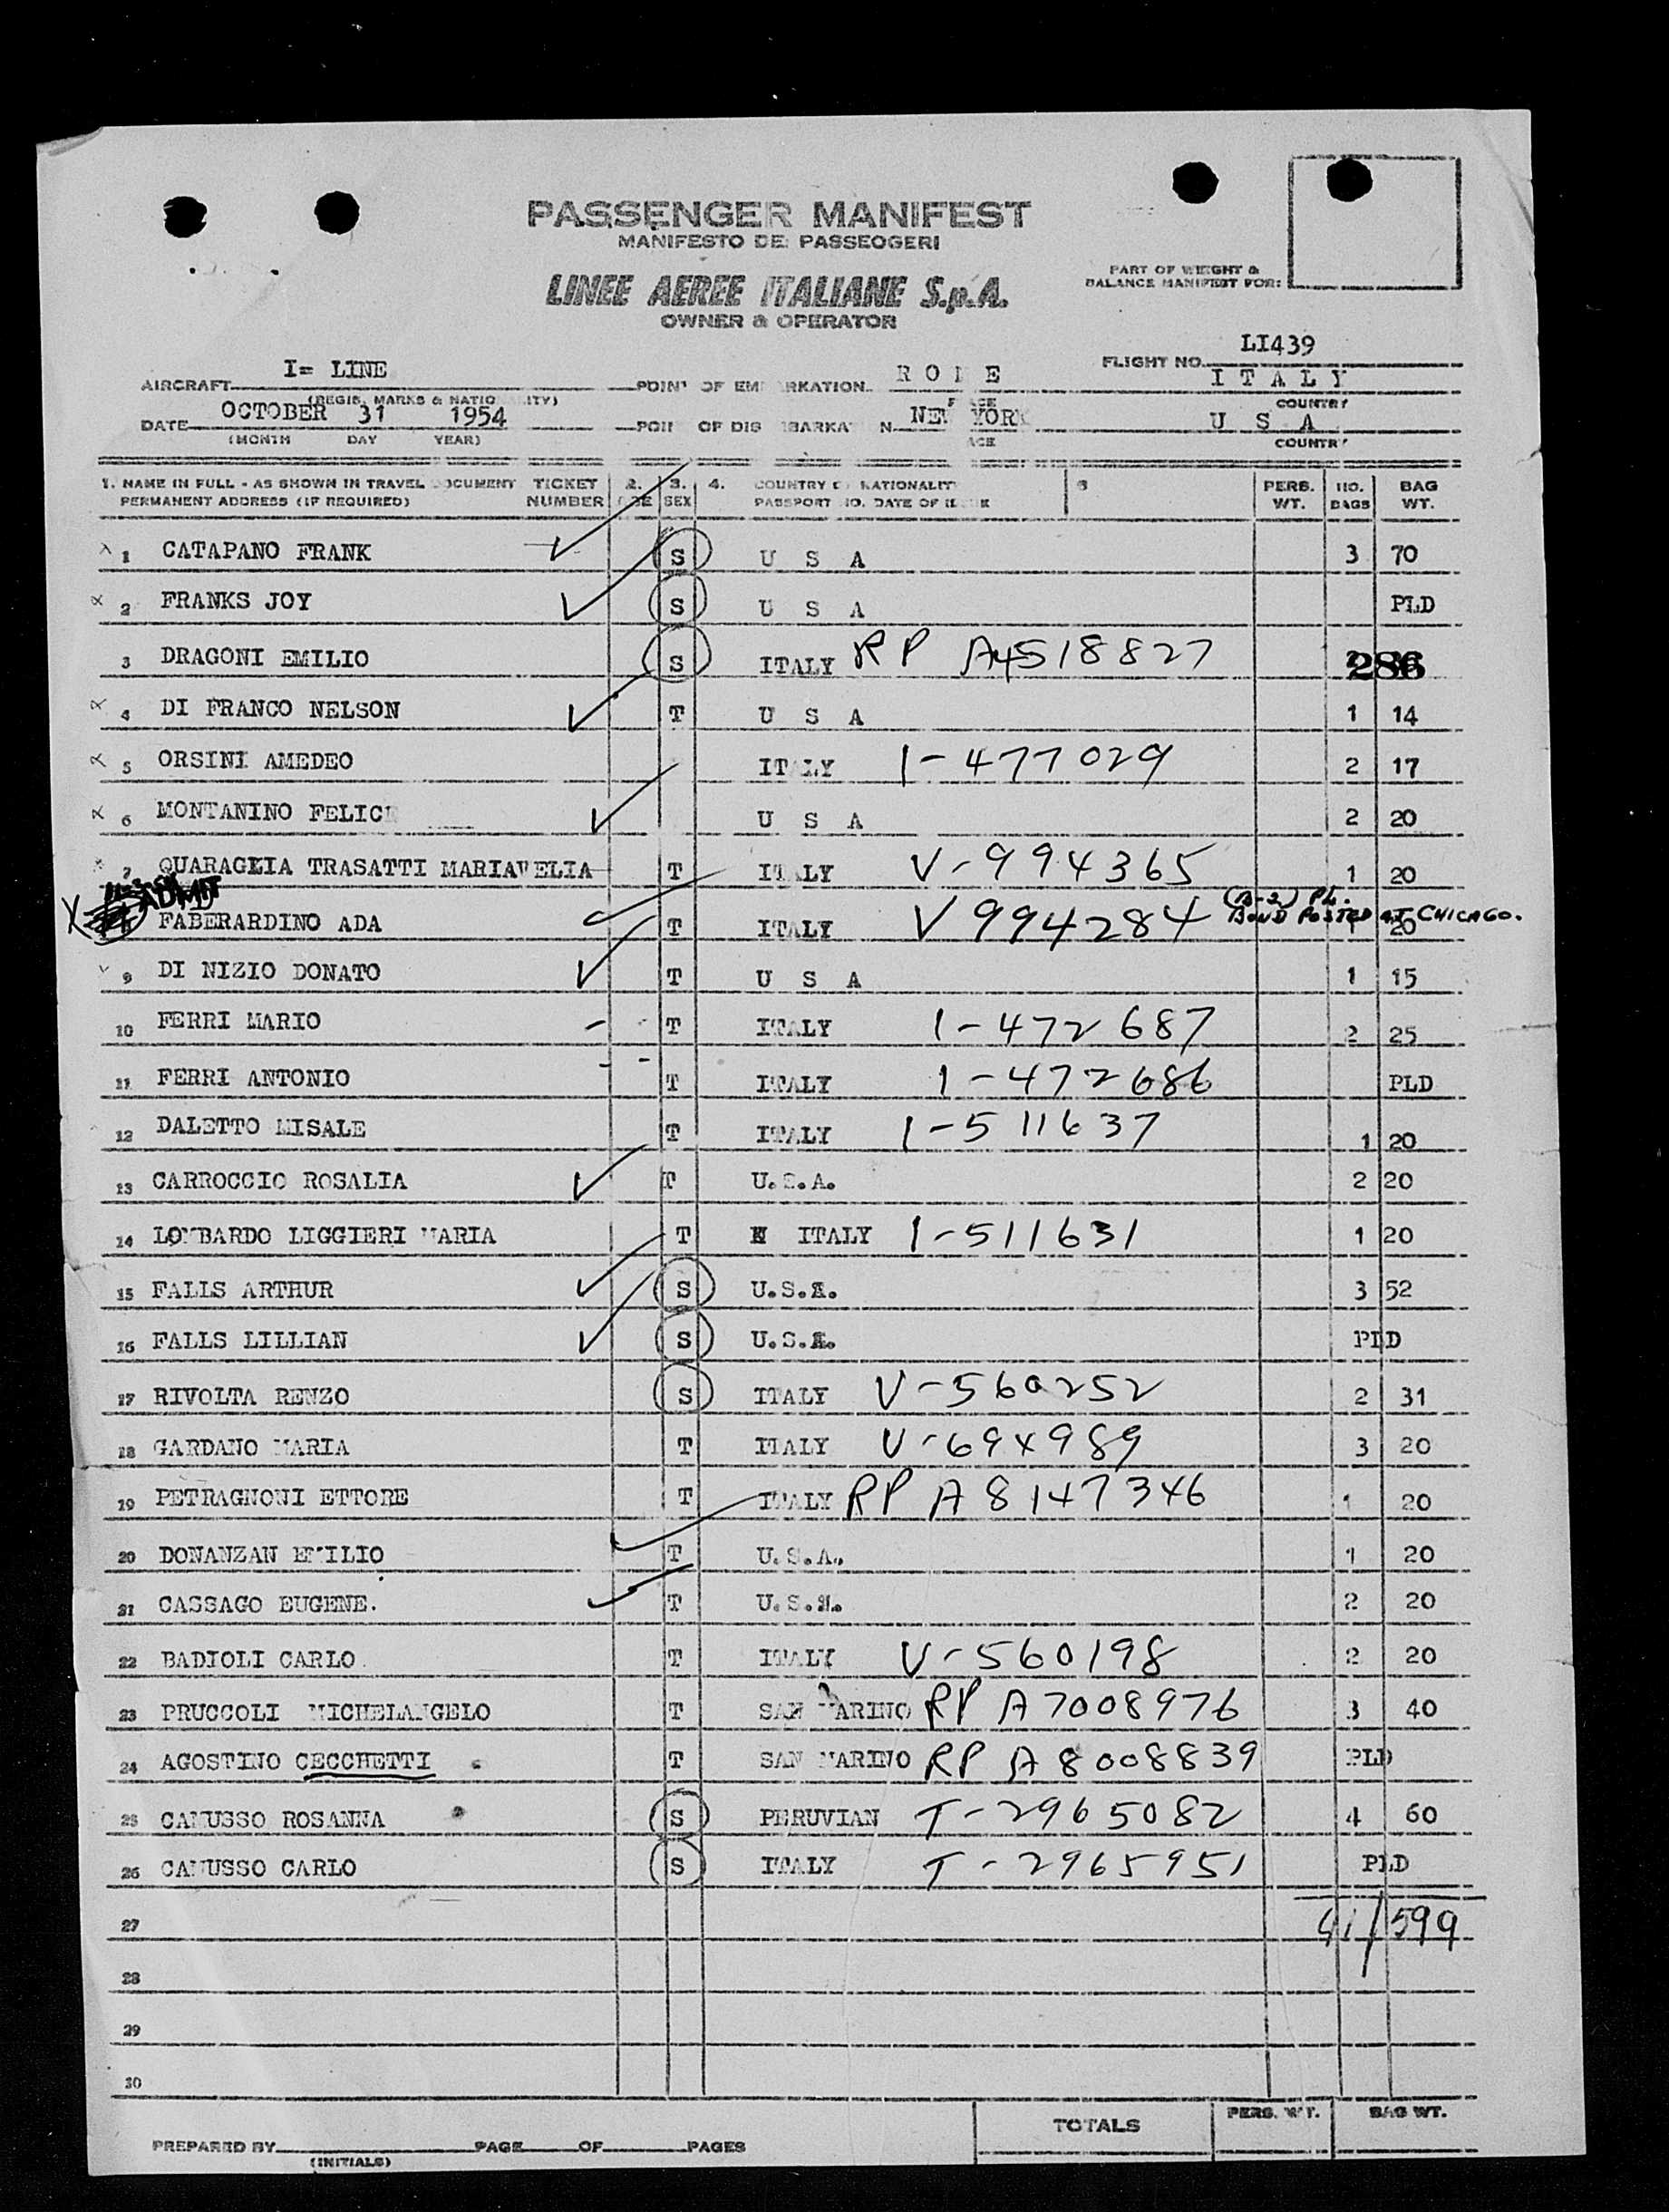 PASSENGER MANIFEST
MANIFESTO DEI PASSEOGERI
LINEE AEREE ITALIANE S.p.A.
OWNER & OPERATOR
PART OF WEIGHT &
BALANCE MANIFEST FOR:
FLIGHT NO. LI439
AIRCRAFT I= LINE
(REGIS. MARKS & NATIO ITY)
POIN OF EM RKATION ROME ITALY
COUNTRY
DATE OCTOBER 31 1954
(MONTH DAY YEAR)
POI OF DIS BARKA N NEW YORK U S A
COUNTRY
1. NAME IN FULL - AS SHOWN IN TRAVEL DOCUMENT TICKET 2. 3. 4. COUNTRY OF NATIONALITY PERS. NO. BAG
PERMANENT ADDRESS (IF REQUIRED) NUMBER SEX PASSPORT NO. DATE OF ISSUE WT. BAGS WT.
1 CATAPANO FRANK S U S A 3 70
2 FRANKS JOY S U S A PLD
3 DRAGONI EMILIO S ITALY RP A4518827 286
4 DI FRANCO NELSON T U S A 1 14
5 ORSINI AMEDEO ITALY 1-477029 2 17
6 MONTANINO FELICE U S A 2 20
7 QUARAGLIA TRASATTI MARIAVELIA T ITALY V-994365 1 20
ADMIT
(B-2) PL.
BOND POSTED AT CHICAGO.
FABERARDINO ADA T ITALY V 994284 1 20
9 DI NIZIO DONATO T U S A 1 15
10 FERRI MARIO T ITALY 1-472687 2 25
11 FERRI ANTONIO T ITALY 1-472686 PLD
12 DALETTO MISALE T ITALY 1-511637 1 20
13 CARROCCIO ROSALIA T U.S.A. 2 20
14 LOMBARDO LIGGIERI MARIA T ITALY 1-511631 1 20
15 FALLS ARTHUR S U.S.A. 3 52
16 FALLS LILLIAN S U.S.A. PLD
17 RIVOLTA RENZO S ITALY V-560252 2 31
18 GARDANO MARIA T ITALY V-694989 3 20
19 PETRAGNONI ETTORE T ITALY RP A8147346 1 20
20 DONANZAN EMILIO T U.S.A. 1 20
21 CASSAGO EUGENE. T U.S.A. 2 20
22 BADIOLI CARLO T ITALY V-560198 2 20
23 PRUCCOLI MICHELANGELO T SAN MARINO RP A7008976 3 40
24 AGOSTINO CECCHETTI T SAN MARINO RP A8008839 PLD
25 CAMUSSO ROSANNA S PERUVIAN T-2965082 4 60
26 CAMUSSO CARLO S ITALY T-2965951 PLD
27 41/599
28
29
30
TOTALS PERS. WT. BAG WT.
PREPARED BY PAGE OF PAGES
(INITIALS)